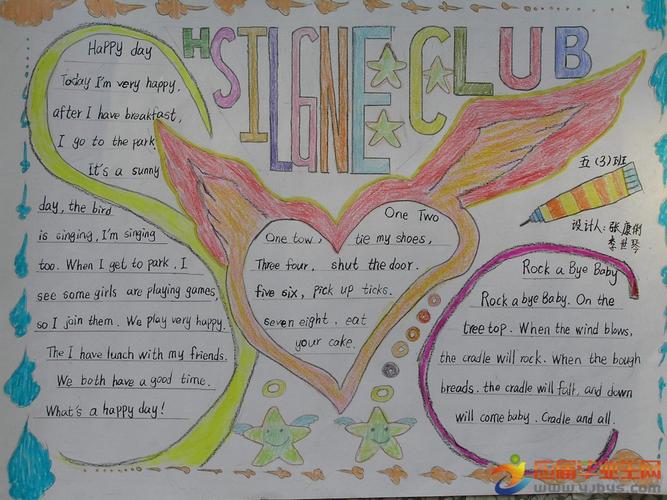 HSILGNE CLUB
Happy day
Today I'm very happy,
after I have breakfast,
I go to the park
It's a sunny
day, the bird
is singing, I'm singing
too. When I get to park, I
see some girls are playing games,
so I join them. We play very happy.
The I have lunch with my friends.
We both have a good time.
What's a happy day!
One Two
One tow, tie my shoes,
Three four, shut the door.
five six, pick up ticks.
seven eight, eat
your cake.
五(3)班
设计人:张康俐
李世琴
Rock a Bye Baby
Rock a bye Baby. On the
tree top. When the wind blows,
the cradle will rock. When the bough
breads. the cradle will falt, and down
will come baby. Cradle and all.
应届毕业生网
www.yjbys.com